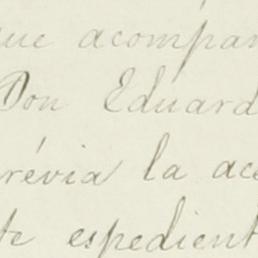 que acompañ
Don Eduard
révia la ace
te espedient